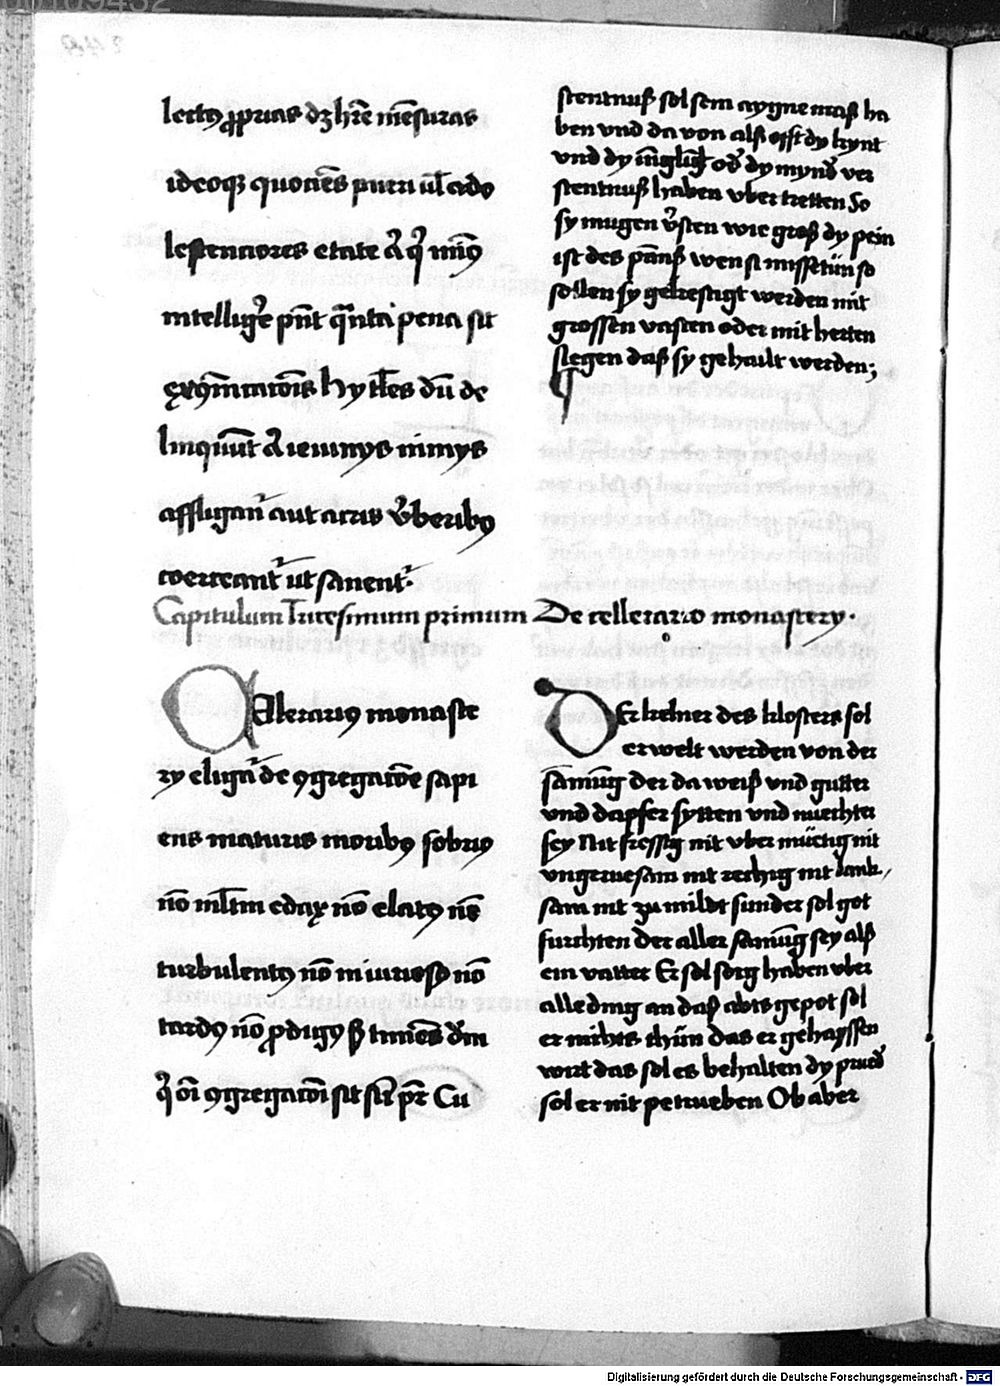 lectus ꝓprias dꝫ hr̄e mēsuras
ideoqꝫ quociēs pueri ul̄ ado
lescenciores etate aut qi miꝰ
intelligēr pn̄t qu̅nta pena sit
exꝯm̄icacōis hy tl̄es dū de
linquūt aut ieiunijs nimijs
affligant̄ aut acris v̄beribꝰ
coerceant̄ ut sanent̄.
stentnuß sol sein aygne maß ha
ben vnd da von alß offt dy kynt
vnd dy iu̅gling od̄ dy mynd̄ ver
stentnuß haben vber tretten So
sy mugen v̄sten wie groß dy pein
ist des pānß wen si missetün so
sollen sy gekestigt werden mit
grossen vasten oder mit herten
slegen daß sy gehailt werden;
Capitulum Tricesimum primum De cellerario monastery.
Celerariꝰ monaste
ry eligat̄ de ꝯgregacōe sapi
ens maturis moribꝰ sobriꝰ
nō ml̄tm edax nō elatꝰ nō
turbulentꝰ nō iniuriosꝰ nō
tardꝰ nō ꝓdigꝰ sꝫ timēs dm̄
qi oi̅ ꝯgregacōi sit sic̄ pr̄ Cu
Der kelner des klosters sol
erwelt werden von der
samūg der da weiß vnd gutter
vnd dapfer sytten vnd nuechter
sey Nit fressig nit vber mütig nit
vngeruesam nit zechig nit lank,
sam nit zu mildt sunder sol got
furchten der aller samūg sey alß
ein vatter Er sol sorg haben vber
alle ding an daß abts gepot sol
er nichts thün das er gehayssen
wirt das sol es behalten dy prud̄
sol er nit petrueben Ob aber
Digitalisierung gefördert durch die Deutsche Forschungsgemeinschaft - DFG